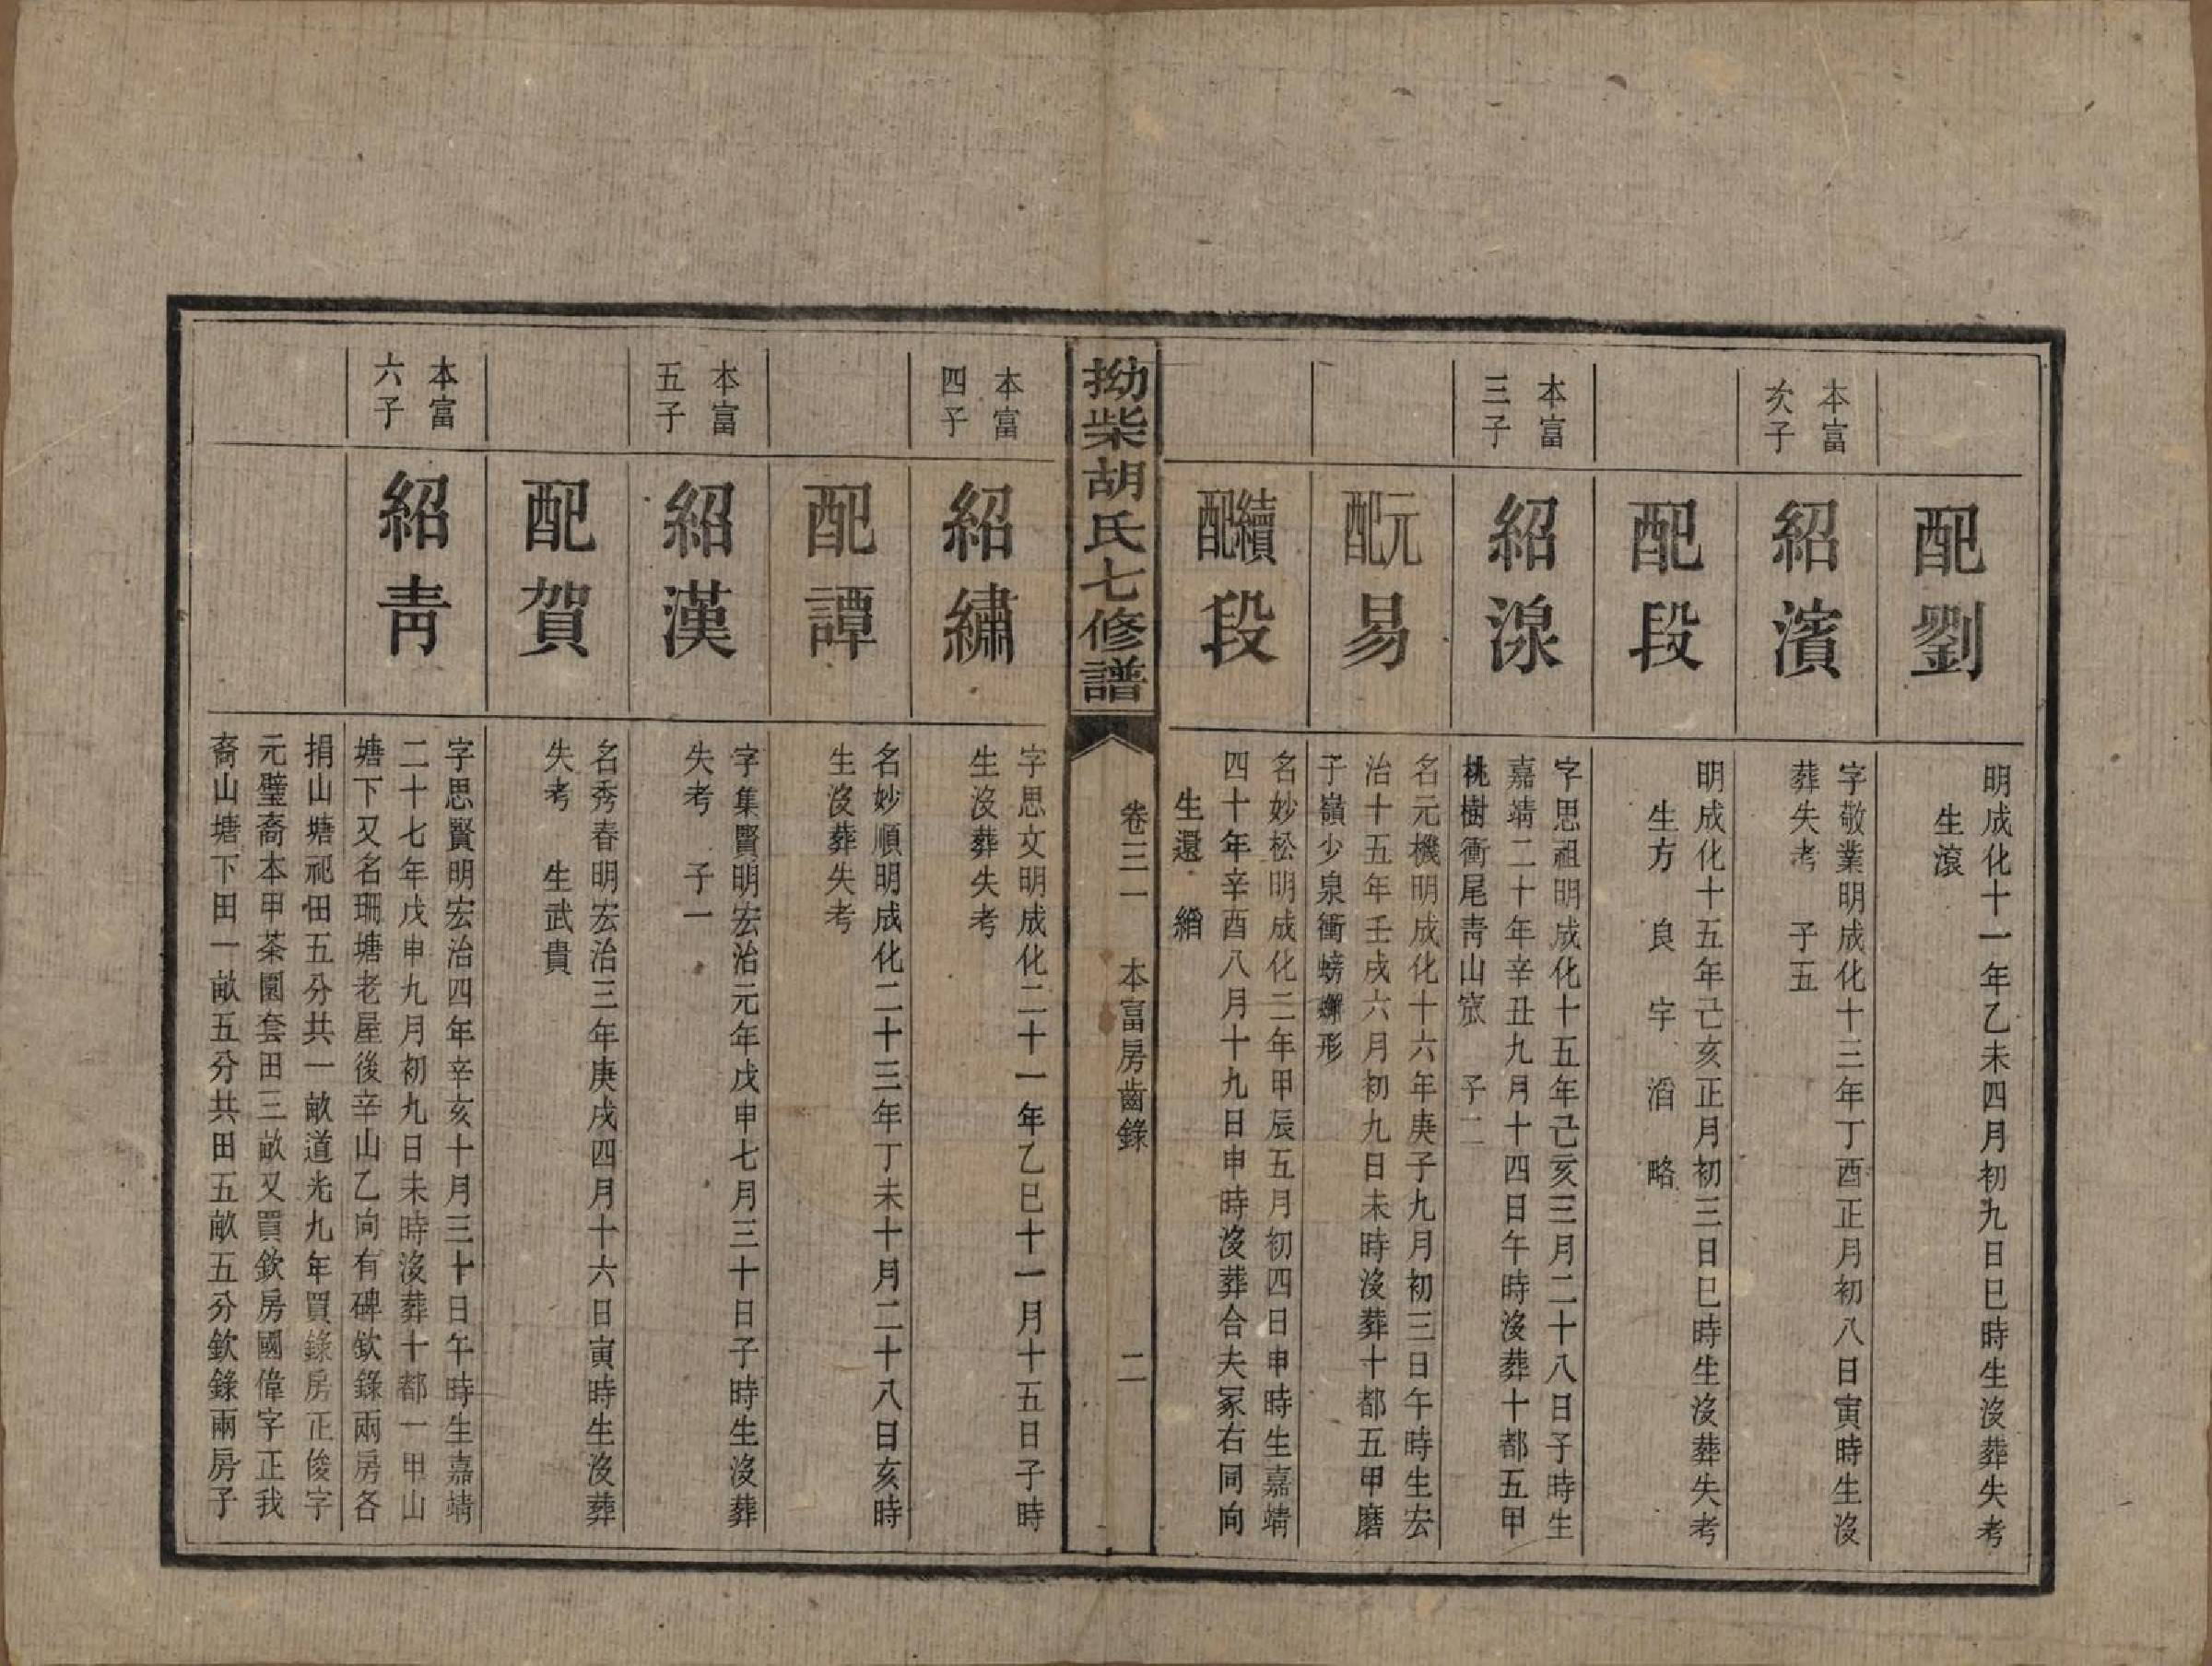 配劉
明成化十一年乙未四月初九日巳時生沒葬失考
生滾
本富
次子
紹濱
字敬業明成化十三年丁酉正月初八日寅時生沒
葬失考　子五
配段
明成化十五年己亥正月初三日巳時生沒葬失考
生方　良　宇　滔　略
本富
三子
紹湶
字思祖明成化十五年己亥三月二十八日子時生
嘉靖二十年辛丑九月十四日午時沒葬十都五甲
桃樹衝尾青山窊　子二
元配易
名元機明成化十六年庚子九月初三日午時生宏
治十五年壬戌六月初九日未時沒葬十都五甲磨
子嶺少泉衝螃蠏形
續配段
名妙松明成化二年甲辰五月初四日申時生嘉靖
四十年辛酉八月十九日申時沒葬合夫冢右同向
生還　綃
拗柴胡氏七修譜
卷三一　本富房齒錄　二
本富
四子
紹繡
字思文明成化二十一年乙巳十一月十五日子時
生沒葬失考
配譚
名妙順明成化二十三年丁未十月二十八日亥時
生沒葬失考
本富
五子
紹漢
字集賢明宏治元年戊申七月三十日子時生沒葬
失考　子一
配賀
名秀春明宏治三年庚戌四月十六日寅時生沒葬
失考　生武貴
本富
六子
紹青
字思賢明宏治四年辛亥十月三十日午時生嘉靖
二十七年戊申九月初九日未時沒葬十都一甲山
塘下又名珊塘老屋後辛山乙向有碑欽錄兩房各
捐山塘祀田五分共一畝道光九年買錄房正俊字
元璧裔本甲茶園套田三畝又買欽房國偉字正我
裔山塘下田一畝五分共田五畝五分欽錄兩房子